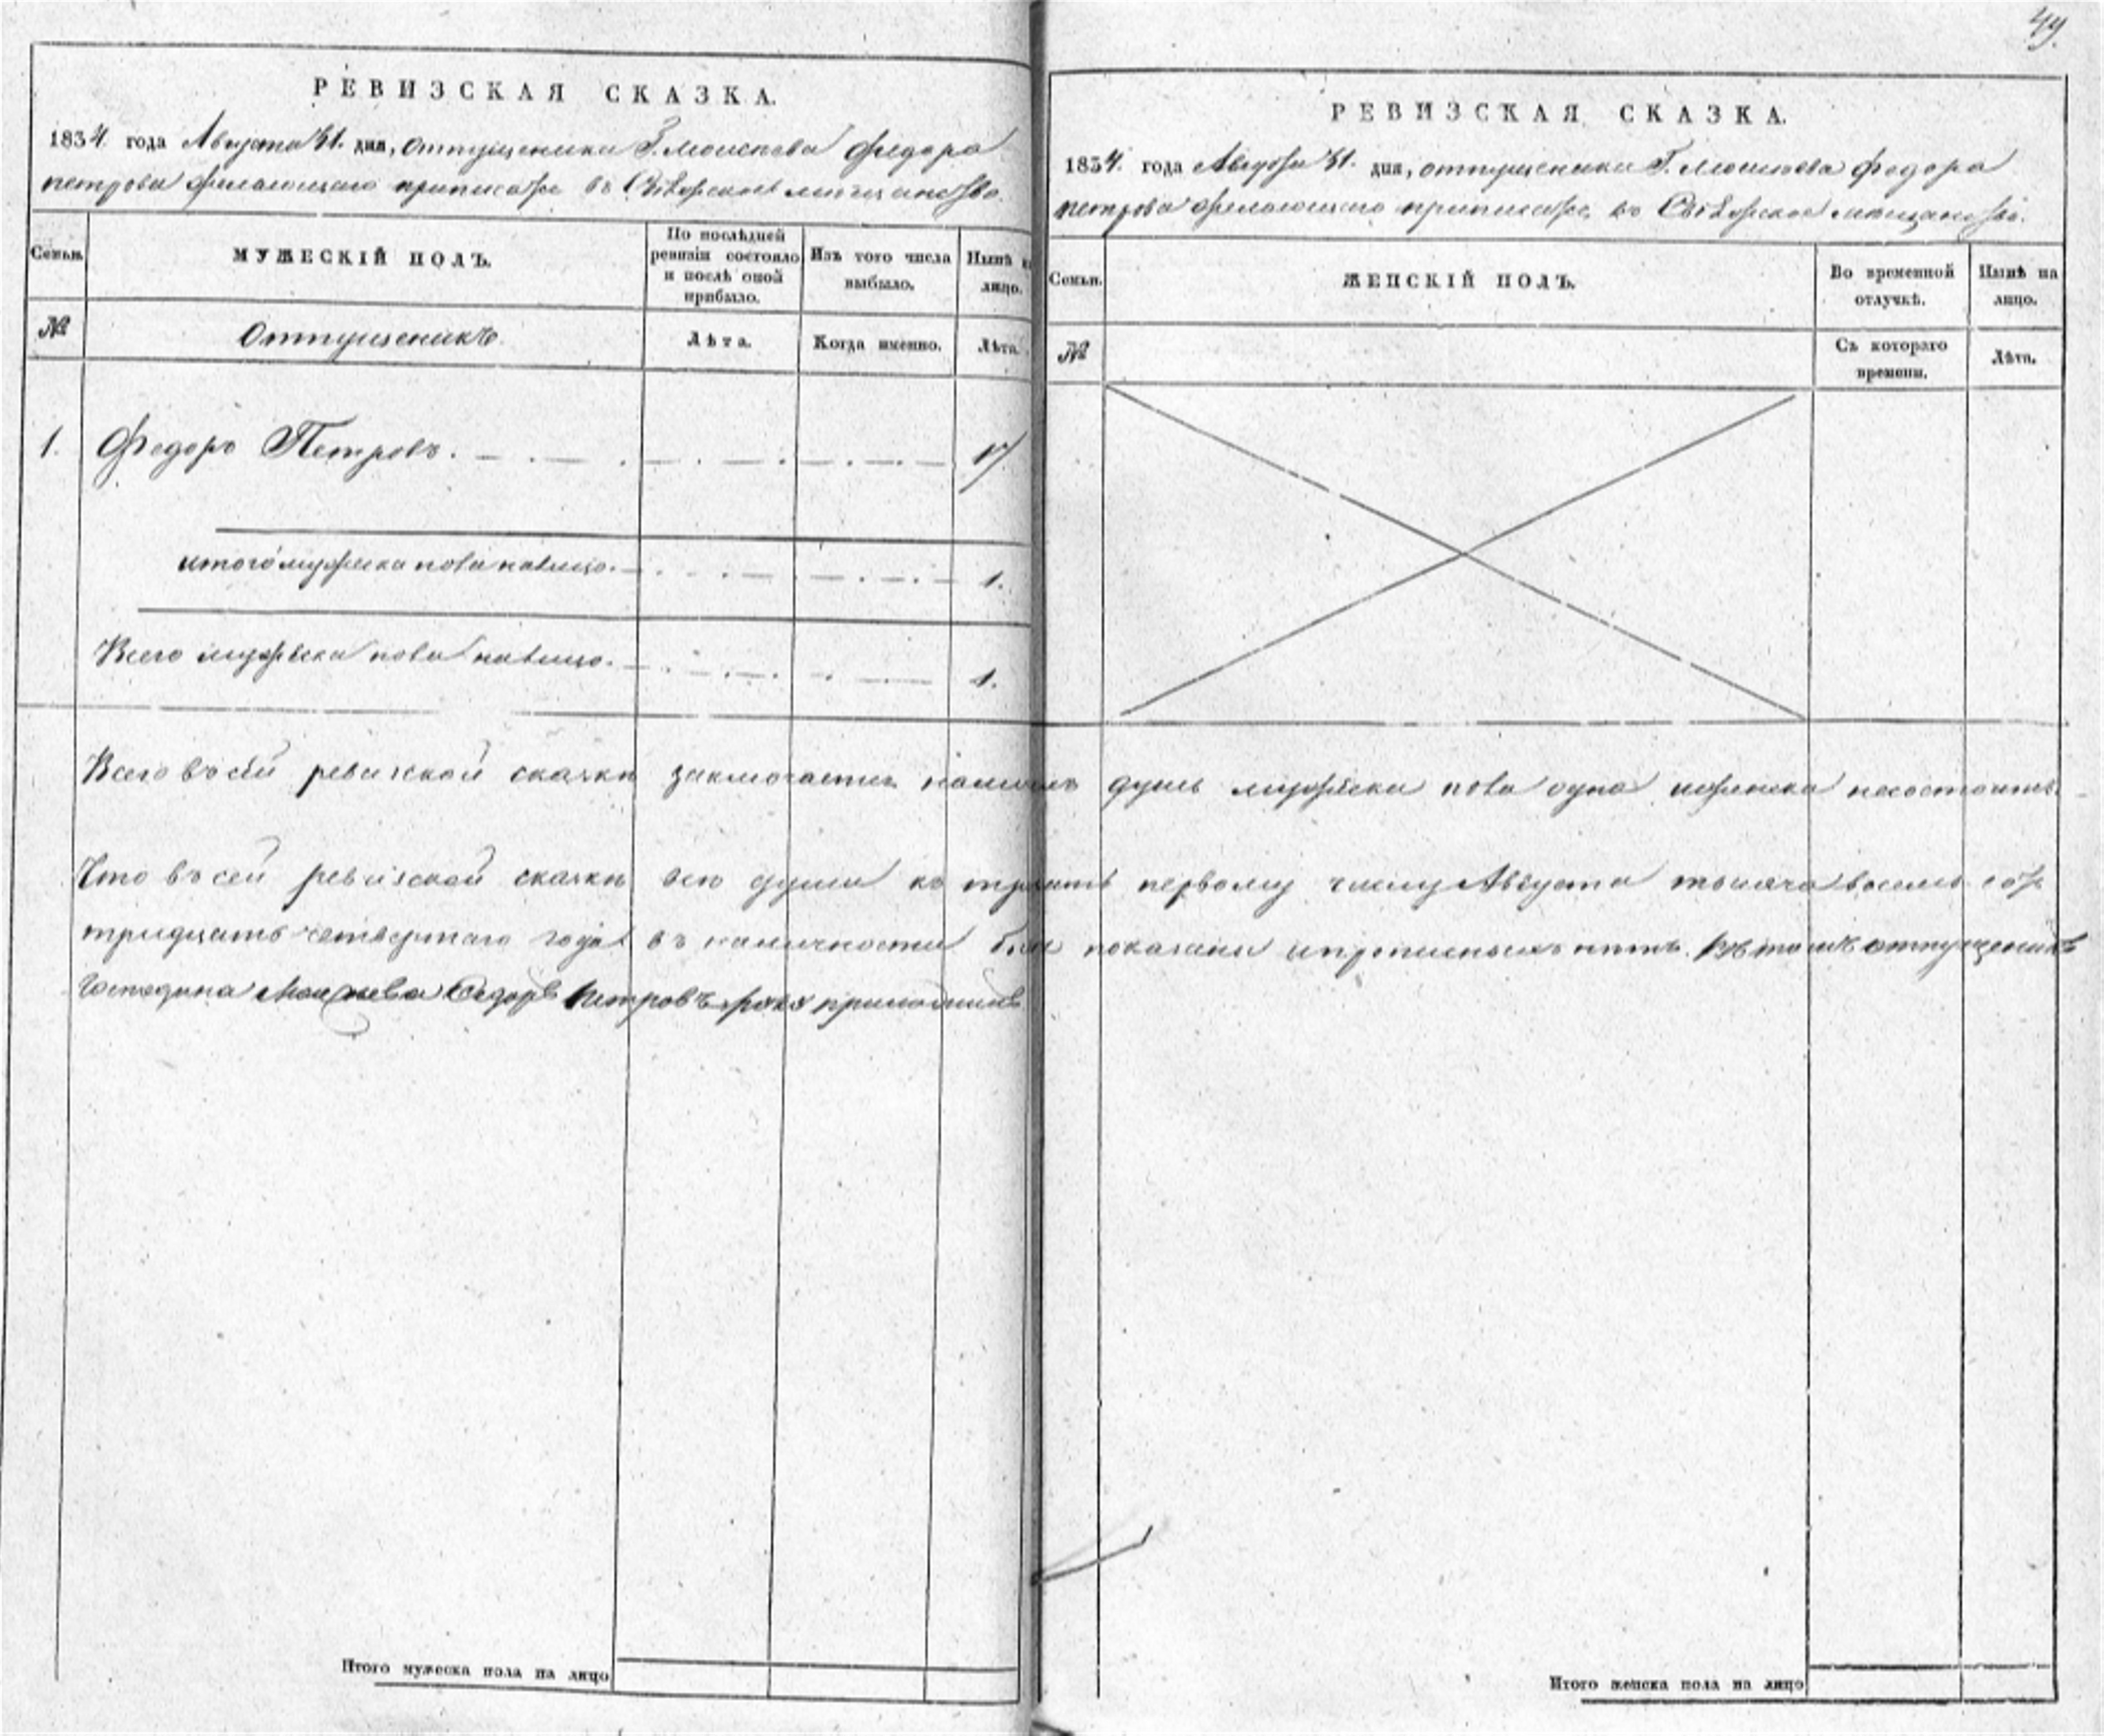 49.
РЕВИЗСКАЯ СКАЗКА.
1834 года Августа 31. дня, отпущеника Г. Моисеева Федора
петрова желающаго приписатся въ мещанство.
Семьи.
МУЖЕСКІЙ ПОЛЪ.
По послѣдней ревизіи состояло и послѣ оной прибыло.
Изъ того числа выбыло.
Нынѣ на лицо.
№
Отпущеникъ
Лѣта.
Когда именно.
Лѣта.
1. Федоръ Петровъ. 17
итого мужеска пола налицо. 1.
Всего мужеска пола налицо. 1.
РЕВИЗСКАЯ СКАЗКА.
1834. года Августа 31. дня, отпущеника Г. Моисеева Федора
петрова желающаго приписатся въ мещанство.
Семьи.
ЖЕНСКІЙ ПОЛЪ.
Во временной отлучкѣ.
Нынѣ на лицо.
№
Съ котораго времени.
Лѣта.
Всего въ сей ревизской сказки заключается налицо душъ мужеска пола одна женска несостоитъ.
Что въ сей ревизской сказки все души къ первому числу Августа тысяча восемь сотъ
тридцать четвертаго года въ наличности были показаны и прописныхъ нитъ. Въ томъ отпущеникъ
Господина Моисеева Федоръ Петровъ руку приложилъ
Итого мужеска пола на лицо
Итого женска пола на лицо